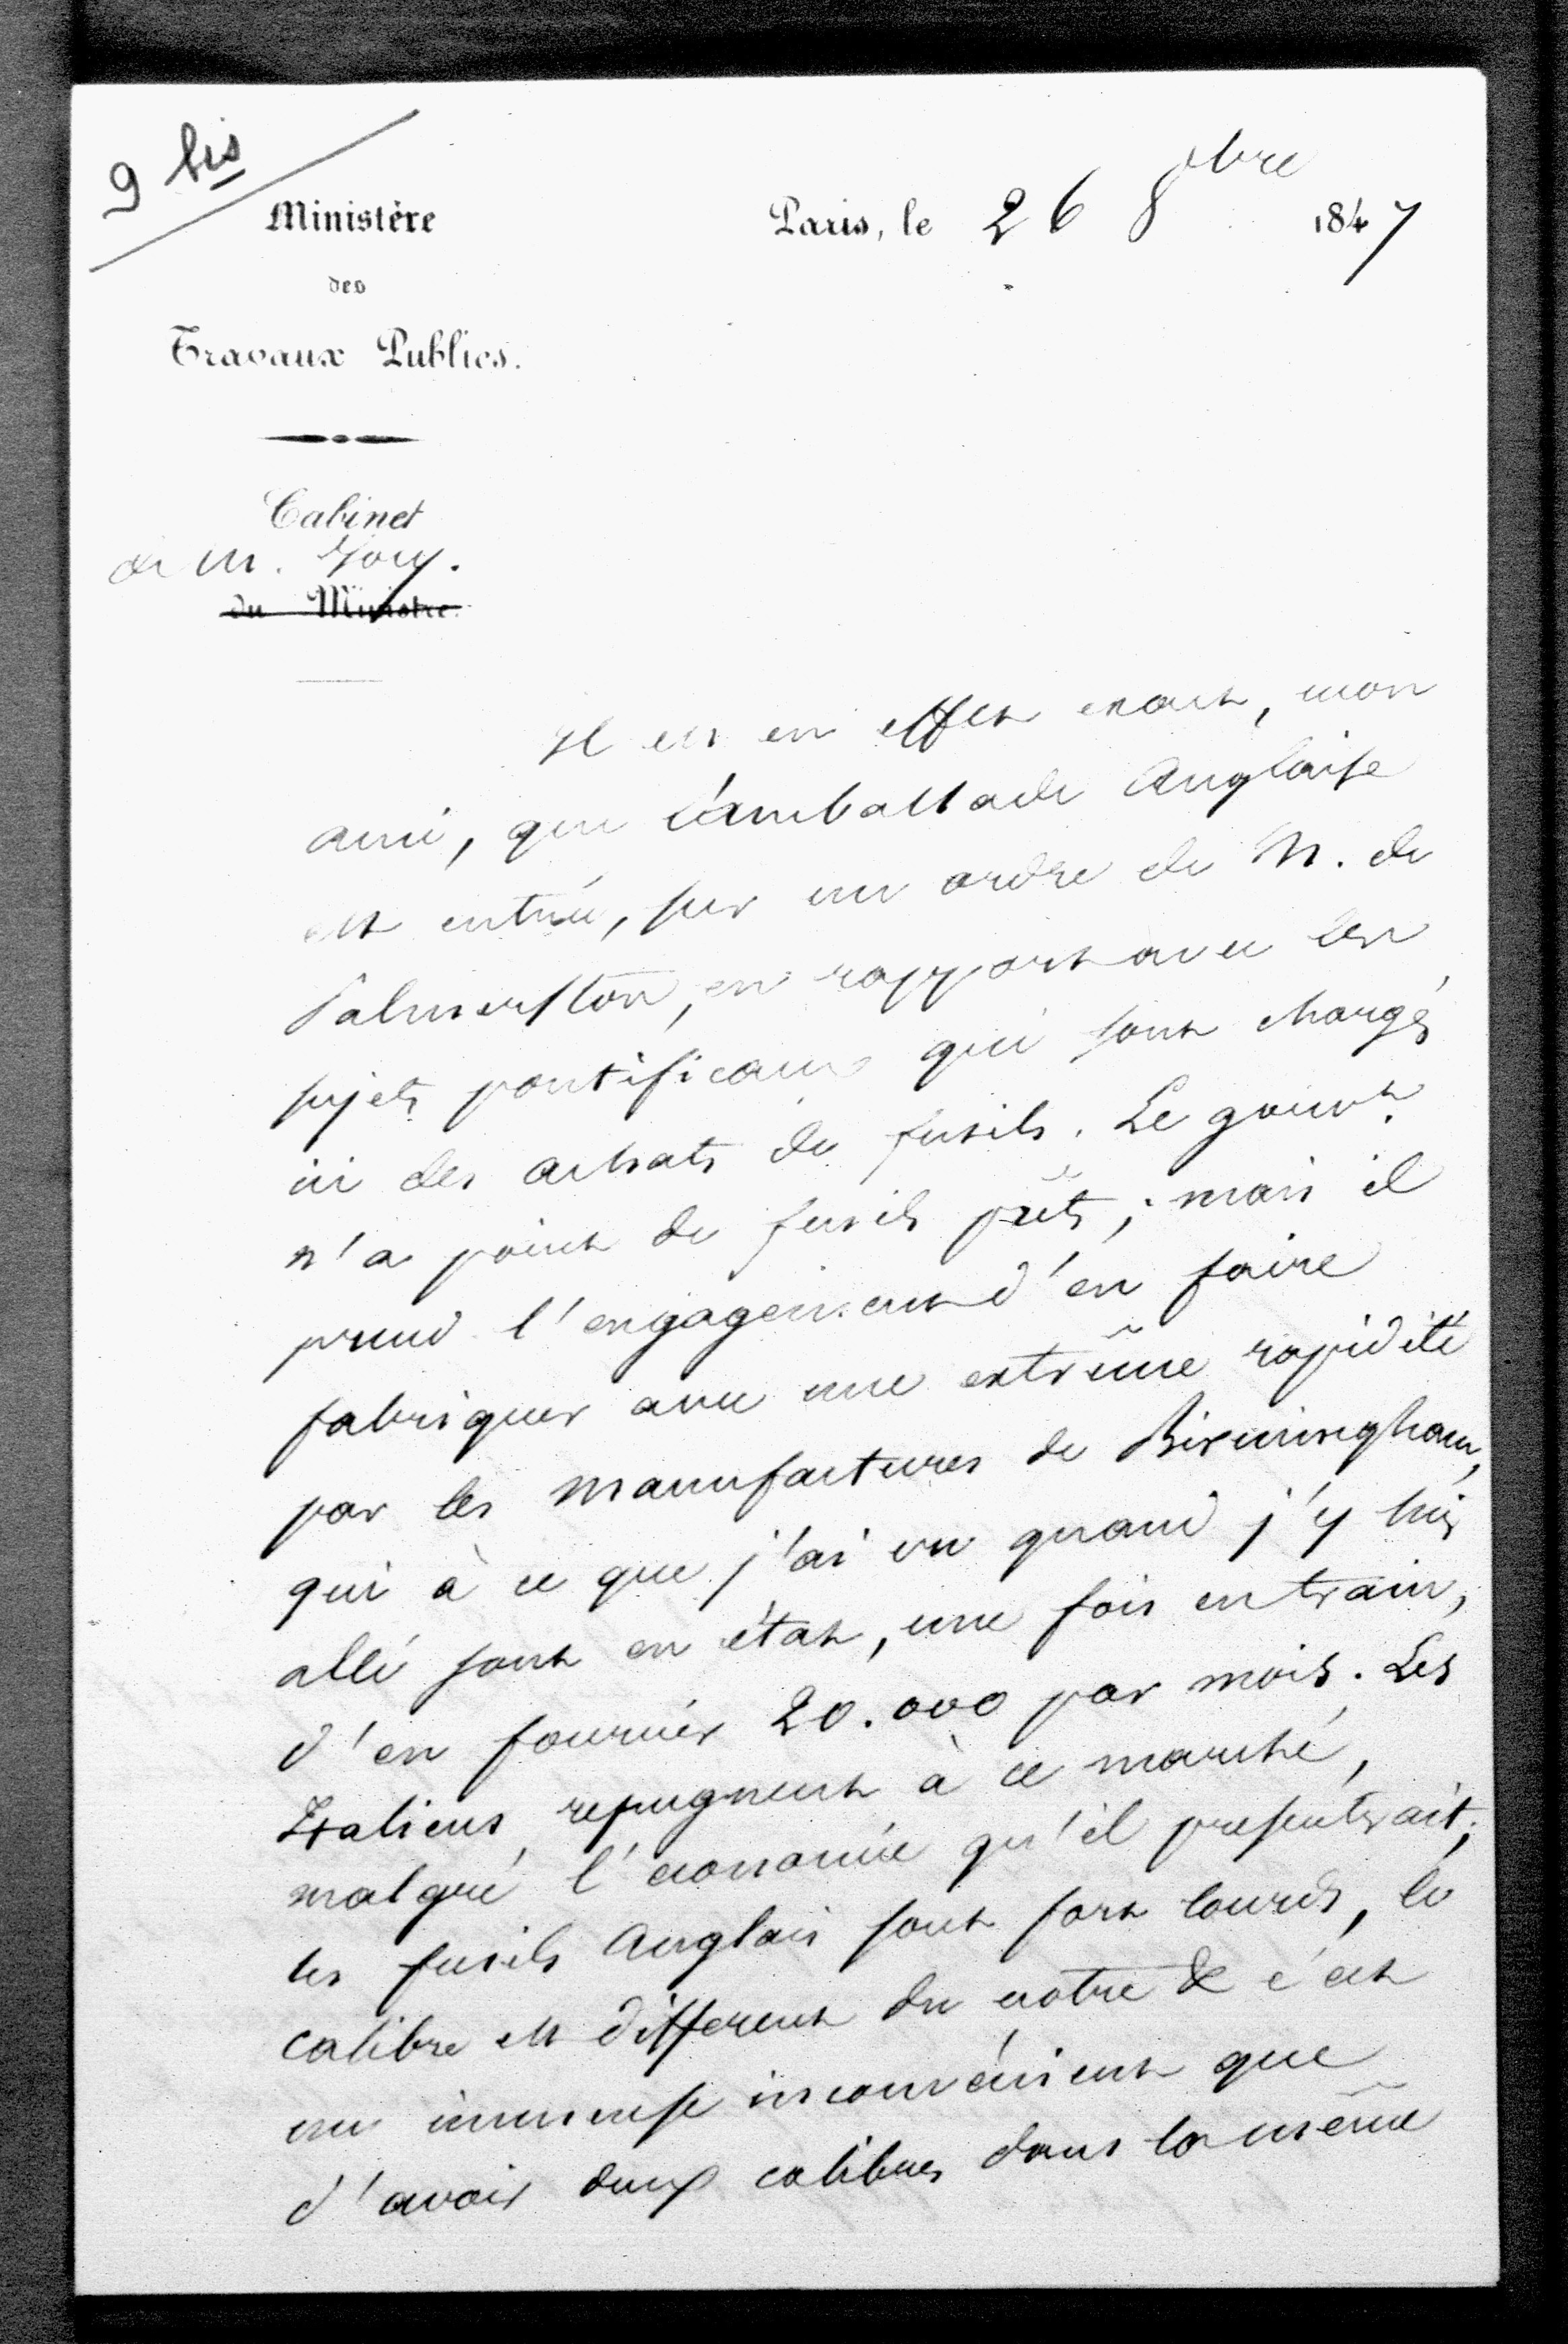 9 bis
Ministère
des
Travaux Publics.
Cabinet
de M.
du Ministre.
Paris, le 26 8bre 1847
Il est en effet exact, mon
ami, que l'ambassade Anglaise
est entrée, sur un ordre de M. de
Palmerston, en rapport avec les
sujets pontificaux qui sont chargés
ici des achats de fusils. Le gouvt.
n'a point de fusils prêts; mais il
prend l'engagement d'en faire
fabriquer avec une extrême rapidité
par les manufactures de Birmingham,
qui à ce que j'ai vu quand j'y suis
allé sont en état, une fois en train,
d'en fournir 20.000 par mois. Les
Italiens repugnent à ce marché,
malgré l'économie qu'il presenterait;
les fusils Anglais sont fort lourds, le
calibre est different du notre & c'est
un immense inconvénient que
d'avoir deux calibres dans la même